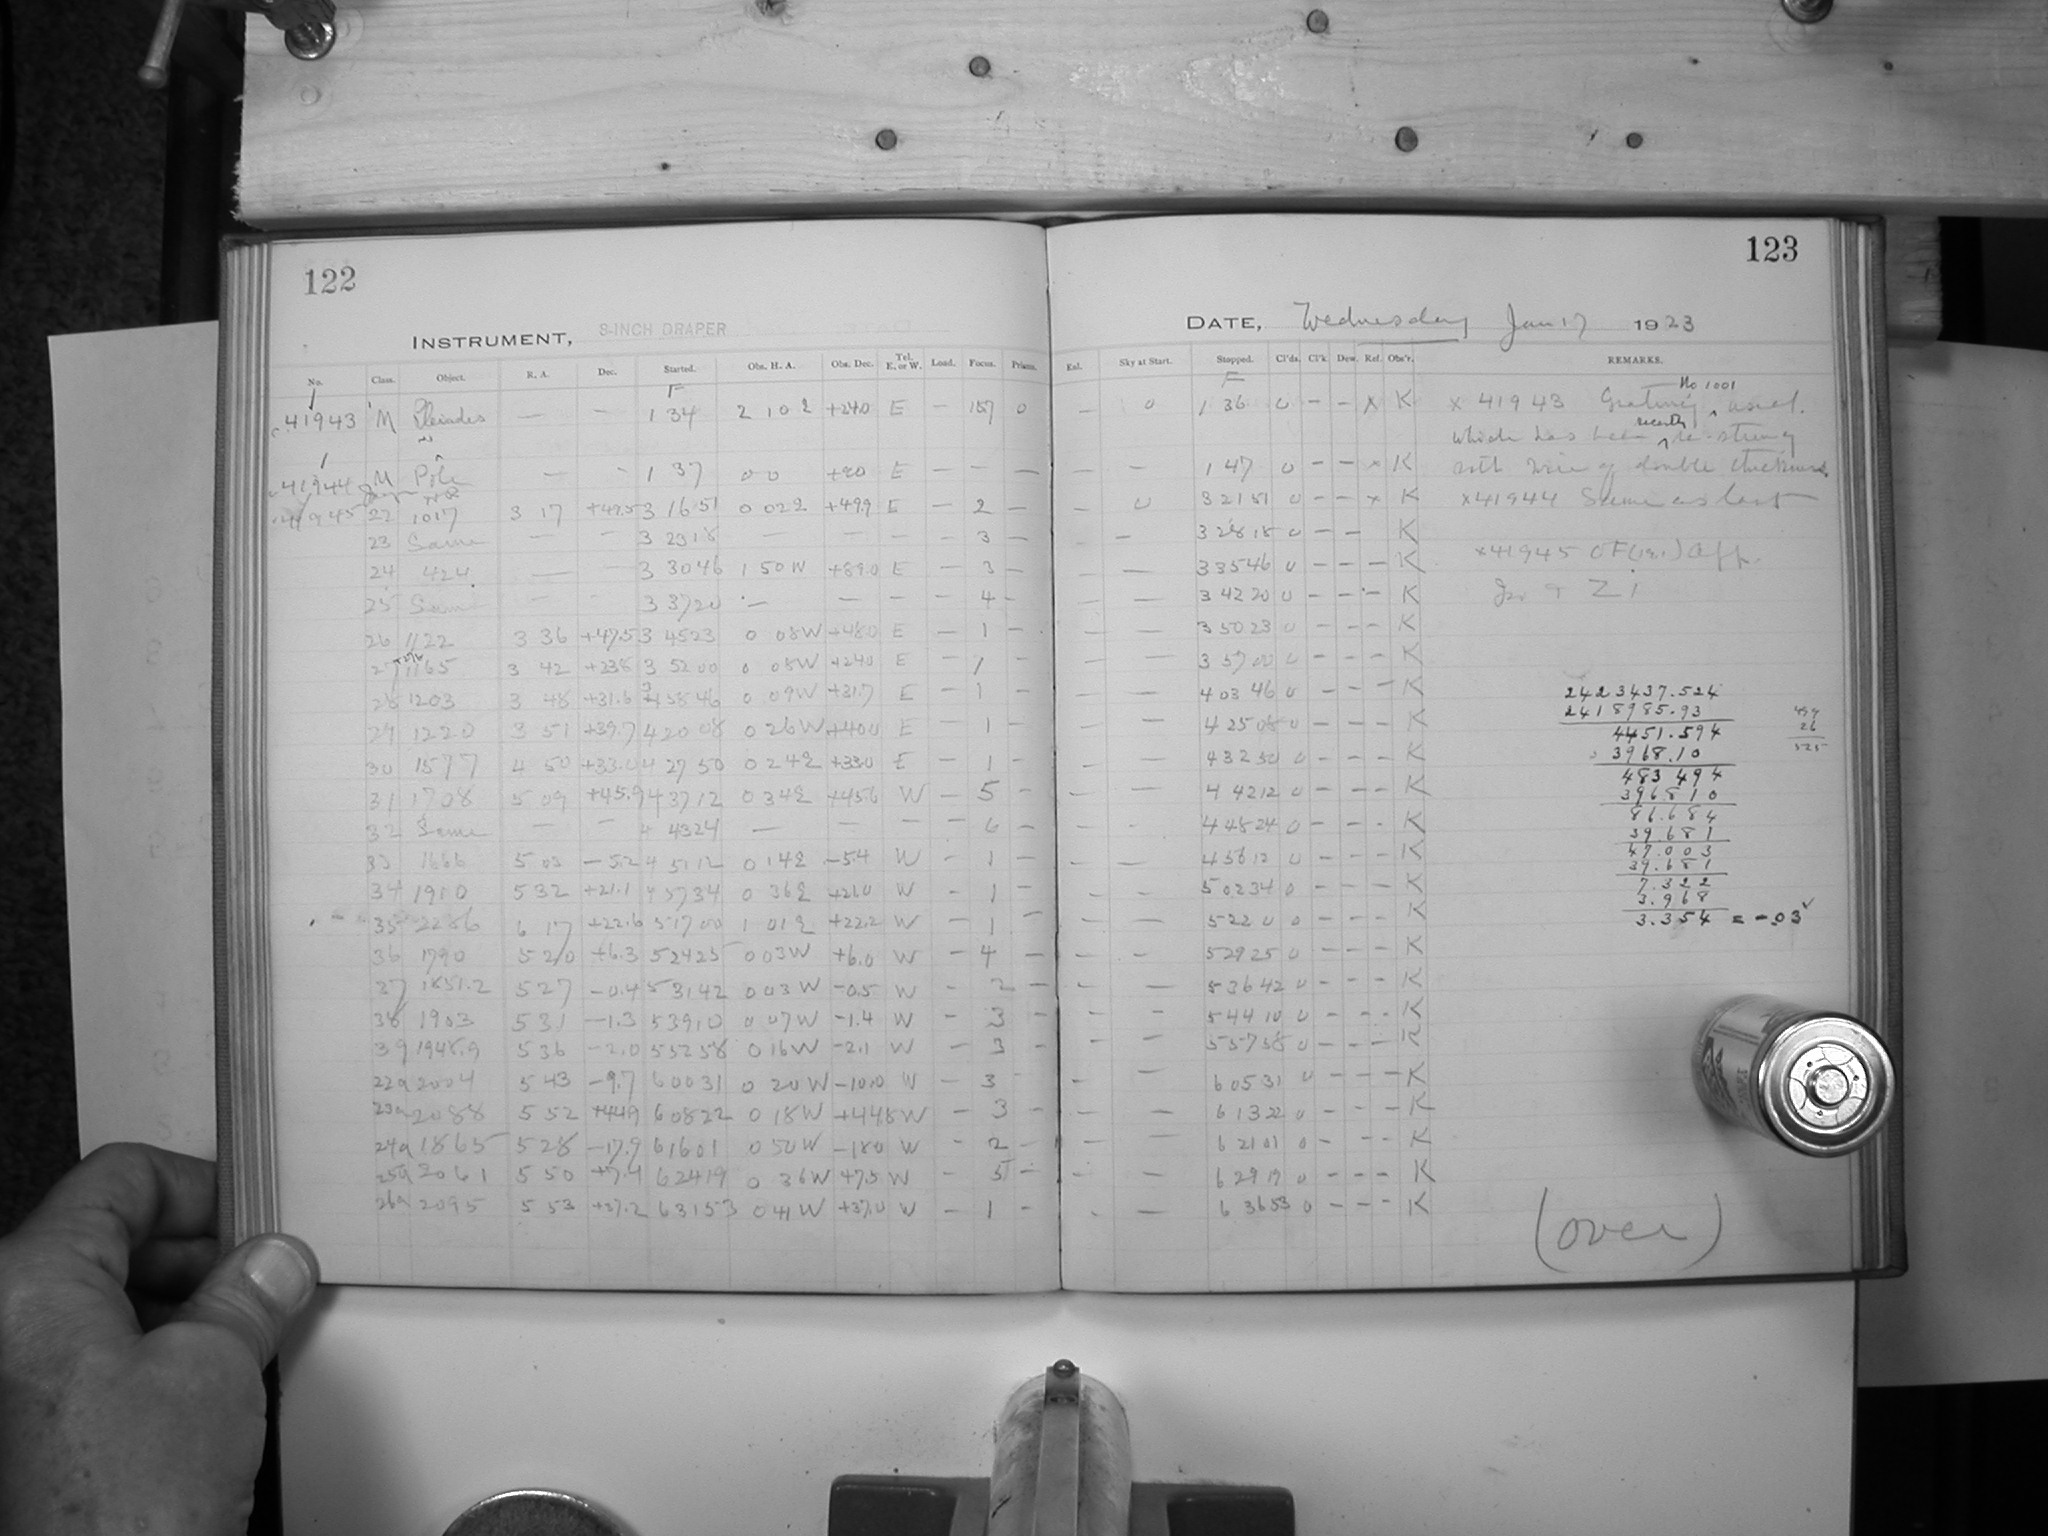 122
INSTRUMENT, 8-INCH DRAPER
No. Class. Object. R. A. Dec. Started. Obs. H. A. Obs. Dec. Tel. E. or W. Load. Focus. Prisms.
F
41943 M Pleiades — — 1 34 2 10 E +24.0 E — 157 0
41944 M Pole — — 1 37 0 0 +90 E — — —
41945 22 1017 3 17 +49.5 3 16 51 0 02 E +49.9 E — 2 —
23 Same — — 3 23 18 — — — — 3 —
24 424 — — 3 30 46 1 50 W +89.0 E — 3 —
25 Same — — 3 37 20 — — — — 4 —
26 1122 3 36 +47.5 3 45 23 0 08 W +48.0 E — 1 —
27 1165 3 42 +23.8 3 52 00 0 08 W +24.0 E — 1
28 1203 3 48 +31.6 3 58 46 0 09 W +31.7 E — 1
29 1220 3 51 +39.7 4 20 08 0 26 W +40.0 E — 1 —
30 1577 4 50 +33.0 4 27 50 0 24 E +33.0 E — 1 —
31 1708 5 09 +45.9 4 37 12 0 34 E +45.6 W — 5 —
32 Same — — 4 43 24 — — — — 6 —
33 1666 5 03 -5.2 4 51 12 0 14 E -5.4 W — 1 —
34 1910 5 32 +21.1 4 57 34 0 36 E +21.0 W — 1 —
35 2286 6 17 +22.6 5 17 00 1 01 E +22.2 W — 1
36 1790 5 20 +6.3 5 24 25 0 03 W +6.0 W — 4 —
37 1851.2 5 27 -0.4 5 31 42 0 03 W -0.5 W — 2 —
38 1903 5 31 -1.3 5 39 10 0 07 W -1.4 W — 3 —
39 1948.9 5 36 -2.0 5 52 58 0 16 W -2.1 W — 3 —
22a 2004 5 43 -9.7 6 00 31 0 20 W -10.0 W — 3
23a 2088 5 52 +44.9 6 08 22 0 18 W +44.8 W — 3 —
24a 1865 5 28 -17.9 6 16 01 0 50 W -18.0 W — 2 —
25a 2061 5 50 +7.4 6 24 19 0 36 W +7.5 W — 5 —
26a 2095 5 53 +37.2 6 31 53 0 41 W +37.0 W — 1 —
123
DATE, Wednesday Jan 17 1923
Exl. Sky at Start. Stopped. Cl'ds. Cl'k. Dew. Ref. Obs'r. REMARKS.
F
— 0 1 36 0 — — x K
— — 1 47 0 — — x K
— 0 3 21 51 0 — — x K
— — 3 28 18 0 — — K
— — 3 35 46 0 — — — K
— — 3 42 20 0 — — — K
— — 3 50 23 0 — — — K
— — 3 57 00 0 — — — K
— — 4 03 46 0 — — — K
— — 4 25 08 0 — — — K
— — 4 32 50 0 — — — K
— — 4 42 12 0 — — — K
— — 4 48 24 0 — — — K
— — 4 56 12 0 — — — K
— — 5 02 34 0 — — — K
— — 5 22 0 0 — — — K
— — 5 29 25 0 — — — K
— — 5 36 42 0 — — — K
— — 5 44 10 0 — — — K
— — 5 57 58 0 — — — K
— — 6 05 31 0 — — — K
— — 6 13 22 0 — — — K
— — 6 21 01 0 — — K
— — 6 29 19 0 — — — K
— — 6 36 53 0 — — — K
No 1001
x 41943 Grating ^ usual.
recently
which has been ^ re-strung
with wire of double thickness
x 41944 Same as last
x 41945 OF(191) App.
2423437.524
2418985.93
4451.594
3968.10
483 494
396.810
86.684
39.681
47.003
39.681
7.322
3.968
3.354 = -.03 ✓
499
26
525
(over)